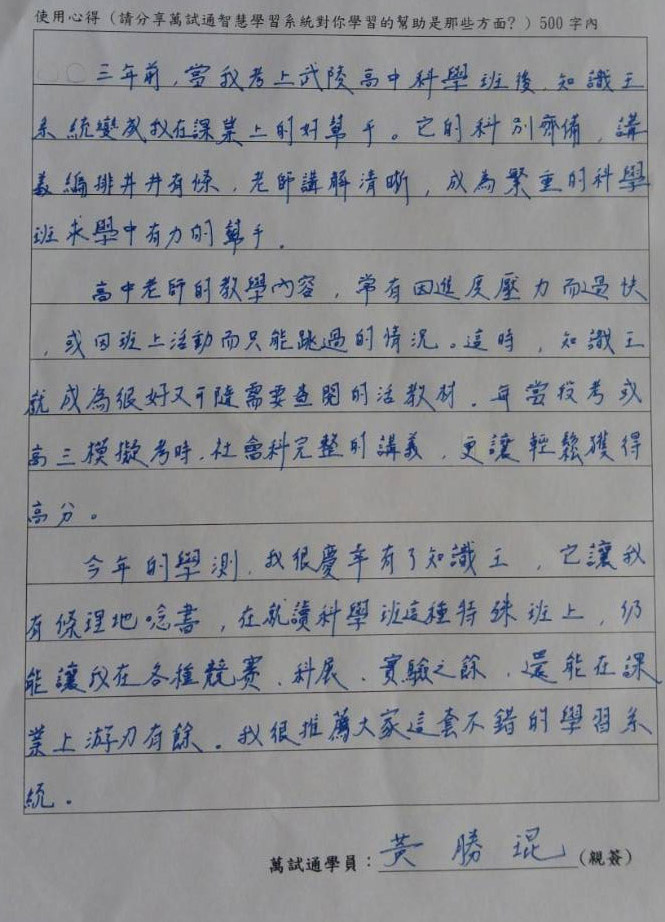 使用心得（請分享萬試通智慧學習系統對你學習的幫助是那些方面？）500 字內
三年前，當我考上武陵高中科學班後，知識王
系統變成我在課業上的好幫手。它的科別齊備，講
義編排井井有條，老師講解清晰，成為繁重的科學
班求學中有力的幫手。
高中老師的教學內容，常有因進度壓力而過快
，或因班上活動而只能跳過的情況。這時，知識王
就成為很好又可隨需要查閱的活教材。每當段考或
高三模擬考時，社會科完整的講義，更讓輕鬆獲得
高分。
今年的學測，我很慶幸有了知識王，它讓我
有條理地唸書，在就讀科學班這種特殊班上，仍
能讓我在各種競賽、科展、實驗之餘，還能在課
業上游刃有餘。我很推薦大家這套不錯的學習系
統。
萬試通學員：黃勝琨（親簽）